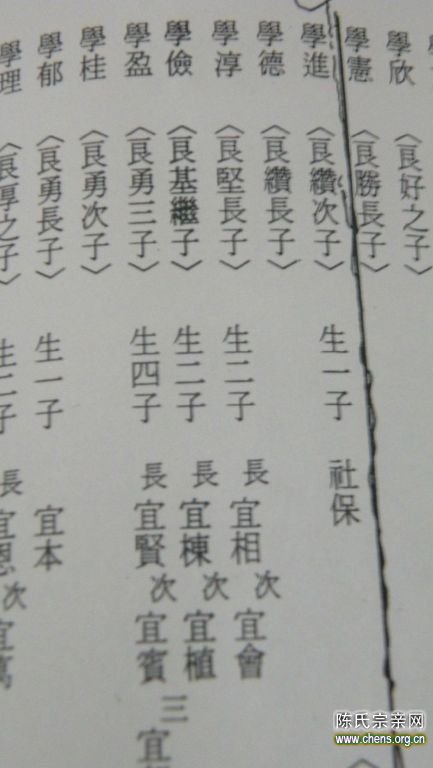 學欣 〈良好之子〉
學憲 〈良勝長子〉
學進 〈良纘次子〉 生一子 社保
學德 〈良纘長子〉
學淳 〈良堅長子〉 生二子 長 宜相 次 宜會
學儉 〈良基繼子〉 生二子 長 宜棟 次 宜植
學盈 〈良勇三子〉 生四子 長 宜賢 次 宜賓 三 宜
學桂 〈良勇次子〉
學郁 〈良勇長子〉 生一子 宜本
學理 〈良厚之子〉 生二子 長 宜恩 次 宜萬
陈氏宗亲网
www.chens.org.cn